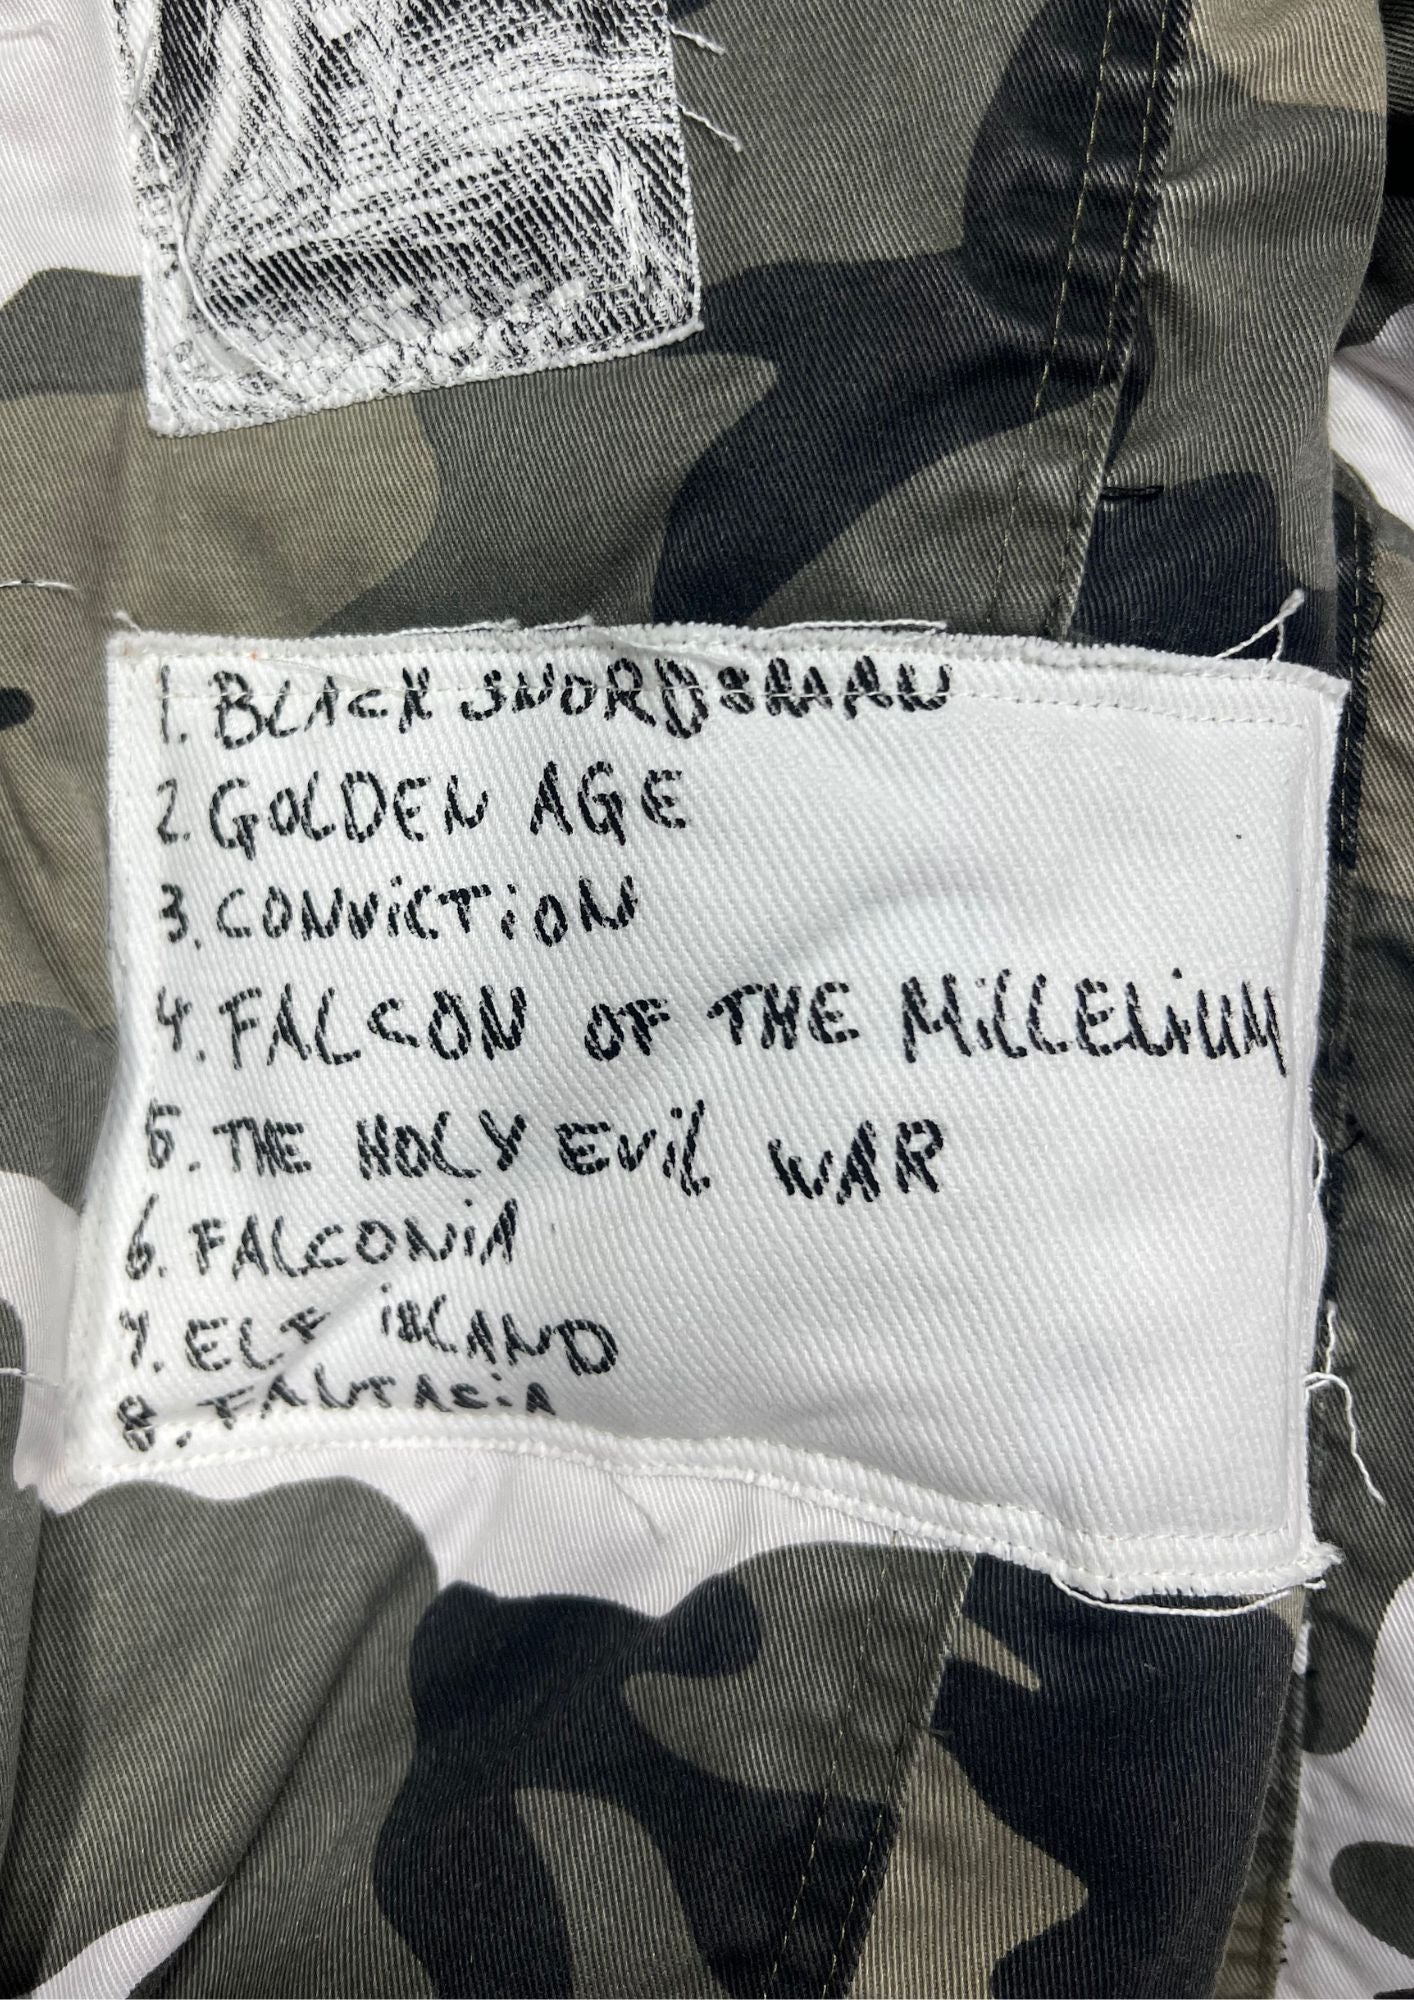 1. BLACK SWORDSMAN
2. GOLDEN AGE
3. CONViCTiON
4. FALCON OF THE MiLLENiUM
5. THE HOLY EViL WAR
6. FALCONiA
7. ELF iSLAND
8. FANTASiA